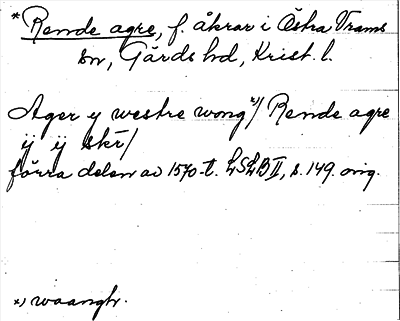 *Rende agre, f. åkrar i Östra Vrams
sn, Gärds hd, Krist. l.
Ager y westre wong *)/ Rende agre
ÿ ÿ skr/
förra delen av 1570-t. LSLB II, s. 149. orig.
*) waangh.